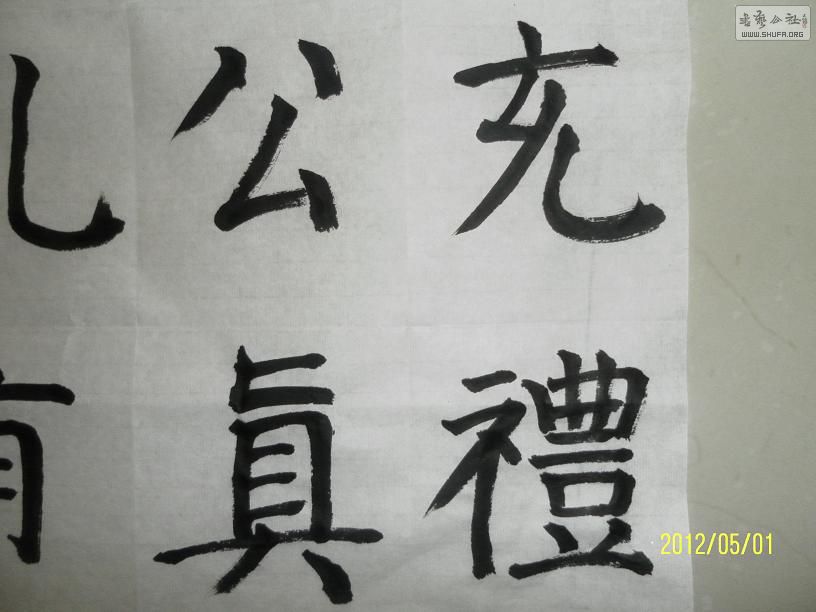 充禮
公真
書藝公社
WWW.SHUFA.ORG
2012/05/01